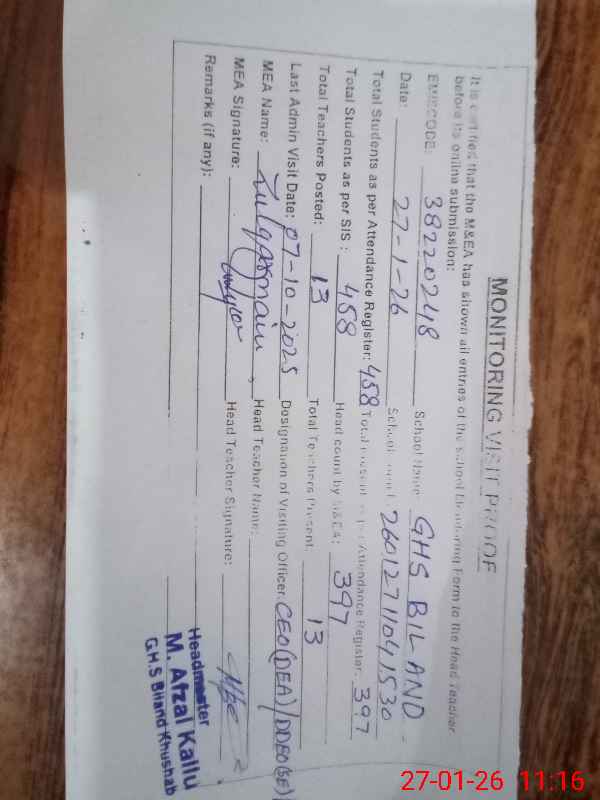 MONITORING VISIT PROOF
It is certified that the M&EA has shown all entries of the school Monitoring Form to the Head Teacher
before its online submission:
EMISCODE: 38220248 School Name: GHS BILAND
Date: 27-1-26 School 26012711041530
Total Students as per Attendance Register: 458 Total present as per Attendance Register: 397
Total Students as per SIS: 458 Head count by M&EA: 397
Total Teachers Posted: 13 Total Teachers Present 13
Last Admin Visit Date: 07-10-2025 Designation of Visiting Officer CEO(DEA)/DDEO(SE)
MEA Name: Zulqarnain Head Teacher Name:
MEA Signature: Head Teacher Signature:
Remarks (if any):
Headmaster
M. Afzal Kallu
G.H.S Biland Khushab
27-01-26 11:16